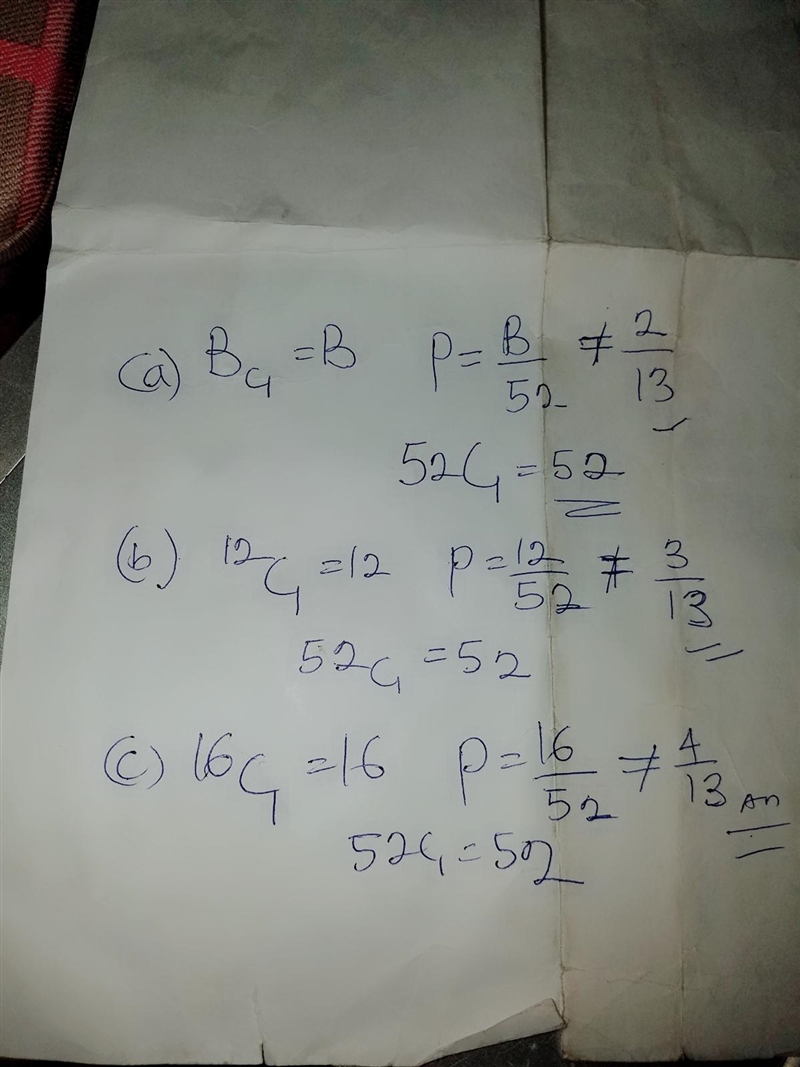 (a) B C₁ = B P = B/52 ≠ 2/13
52C₁ = 52
(b) ¹²C₁ = 12 P = 12/52 ≠ 3/13
52C₁ = 52
(c) 16C₁ = 16 P = 16/52 ≠ 4/13 An
52C₁ = 52